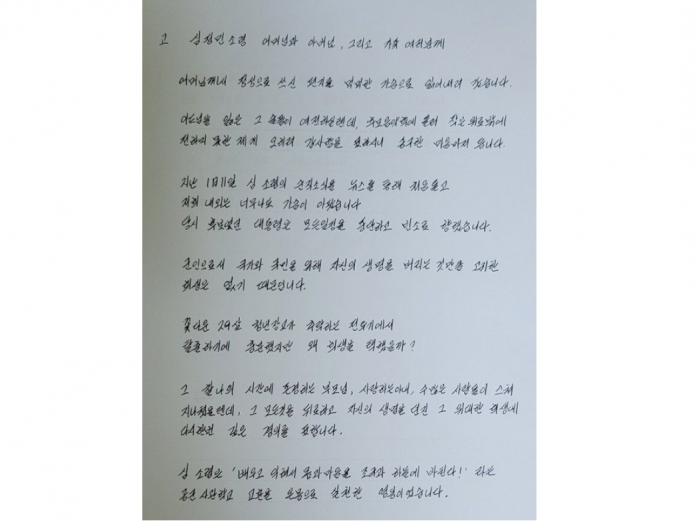 고 심정민소령 어머님과 아버님, 그리고 유족 여러분께
어머님께서 정성으로 쓰신 편지를 먹먹한 가슴으로 읽어내려 갔습니다.
아드님을 잃은 그 슬픔이 여전하실텐데, 위로밖에
전하지 못한 제게 오히려 감사함을 표하시니 숙연한 마음마저 듭니다.
지난 1월11일 심 소령의 순직소식을 뉴스를 통해 처음듣고
저희 내외는 너무나도 가슴이 아팠습니다
당시 후보였던 대통령은 모든일정을 중단하고 빈소로 향했습니다.
군인으로서 국가와 국민을 위해 자신의 생명을 버리는 것만큼 고귀한
희생은 없기 때문입니다.
꽃다운 29살 청년장교가 추락하는 전투기에서
탈출하기에 충분했지만 왜 희생을 택했을까?
그 찰나의 시간에 존경하는 부모님, 사랑하는아내, 수많은 사람들이 스쳐
지나갔을텐데, 그 모든것을 뒤로하고 자신의 생명을 던진 그 위대한 희생에
다시한번 깊은 경의를 표합니다.
심 소령은 '배우고 익혀서 몸과마음을 조국과 하늘에 바친다!' 라는
공군 사관학교 교훈을 온몸으로 실천한 영웅이었습니다.